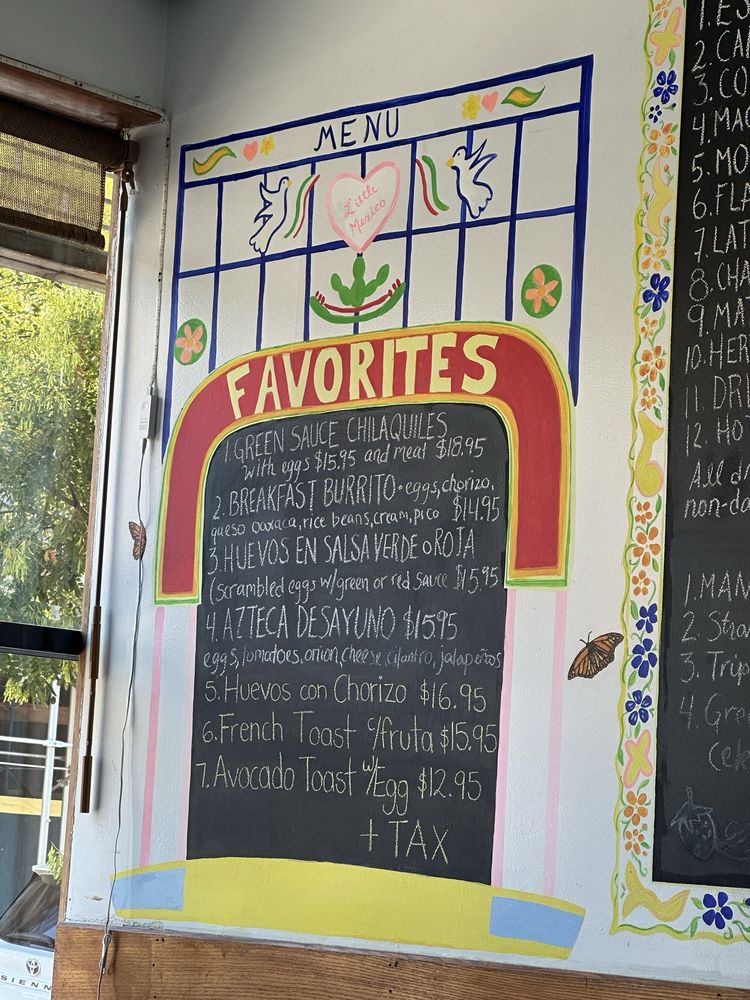 MENU
Little
Mexico
FAVORITES
1. GREEN SAUCE CHILAQUILES
with eggs $15.95 and meat $18.95
2. BREAKFAST BURRITO • eggs, chorizo,
queso oaxaca, rice beans, cream, pico $14.95
3. HUEVOS EN SALSA VERDE o ROJA
(scrambled eggs w/green or red sauce $15.95
4. AZTECA DESAYUNO $15.95
eggs, tomatoes, onion, cheese, cilantro, jalapeños
5. Huevos con Chorizo $16.95
6. French Toast c/fruta $15.95
7. Avocado Toast w/Egg $12.95
+ TAX
1. ES
2. CA
3. CO
4. MA
5. MO
6. FL
7. LAT
8. CHA
9. MA
10. HER
11. DRI
12. HO
All d
non-da
1. MAN
2. Stra
3. Trip
4. Gre
SIENN